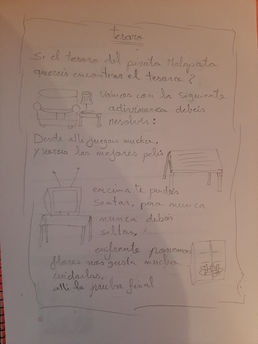 tesoro
Si el tesoro del pirata Malapata
queréis encontrar el tesoro?
vamos con la siguiente
adivinanza debéis
resolver:
Desde allí juegan mucho
y veréis las mejores pelis
encima te puedes
sentar, pero nunca
nunca debéis
saltar.
enfrente ponemos
flores nos gusta mucho
cuidarlas,
allí la prueba final